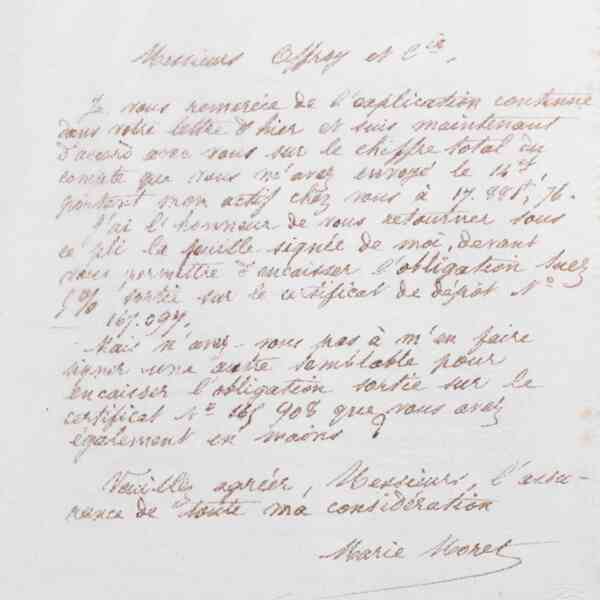 Messieurs Offroy et Cie,
Je vous remercie de l'explication contenue
dans votre lettre d'hier et suis maintenant
d'accord avec vous sur le chiffre total du
compte que vous m'avez envoyé le 14 ct,
portant mon actif chez vous à 17.881f,76.
J'ai l'honneur de vous retourner sous
ce pli la feuille signée de moi, devant
vous permettre d'encaisser l'obligation Suez
5% sortie sur le certificat de dépôt No
167.097.
Mais n'avez-vous pas à m'en faire
signer une autre semblable pour
encaisser l'obligation sortie sur le
certificat No 165 908 que vous avez
également en mains ?
Veuillez agréer, Messieurs, l'assu-
rance de toute ma considération
Marie Moret